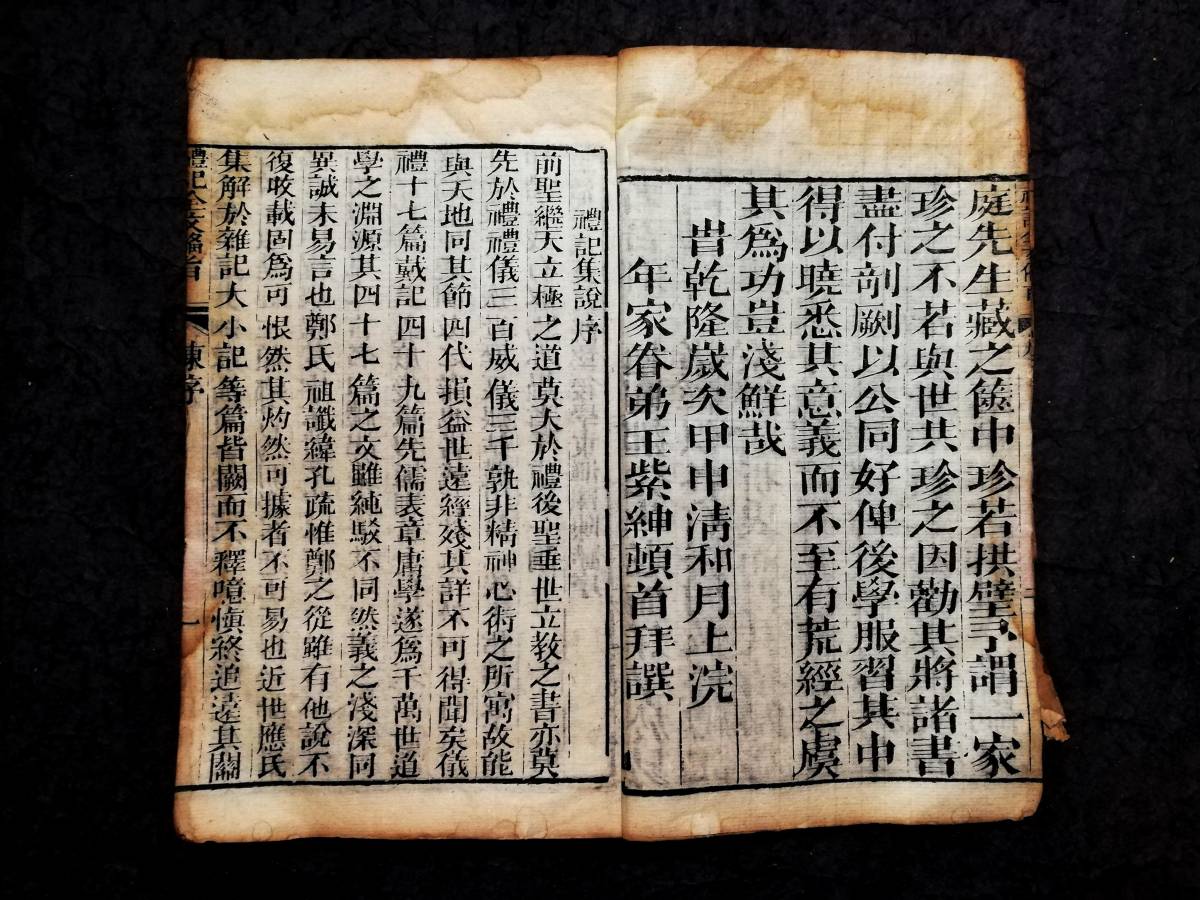 庭先生藏之篋中珍若拱璧予謂一家
珍之不若與世共珍之因勸其將諸書
盡付剞劂以公同好俾後學服習其中
得以曉悉其意義而不至有荒經之虞
其為功豈淺鮮哉
旹乾隆嵗次甲申清和月上浣
年家眷弟王紫紳頓首拜譔
禮記集説序
前聖繼天立極之道莫大於禮後聖垂世立教之書亦莫
先於禮禮儀三百威儀三千孰非精神心術之所寓故能
與天地同其節四代損益世遠經殘其詳不可得聞矣儀
禮十七篇戴記四十九篇先儒表章庸學遂為千萬世道
學之淵源其四十七篇之文雖純駁不同然義之淺深同
異誠未易言也鄭氏祖讖緯孔疏惟鄭之從雖有他說不
復收載固為可恨然其灼然可據者不可易也近世應氏
集解於雜記大小記等篇皆闕而不釋噫慎終追遠其關
禮記全文
陳序
一